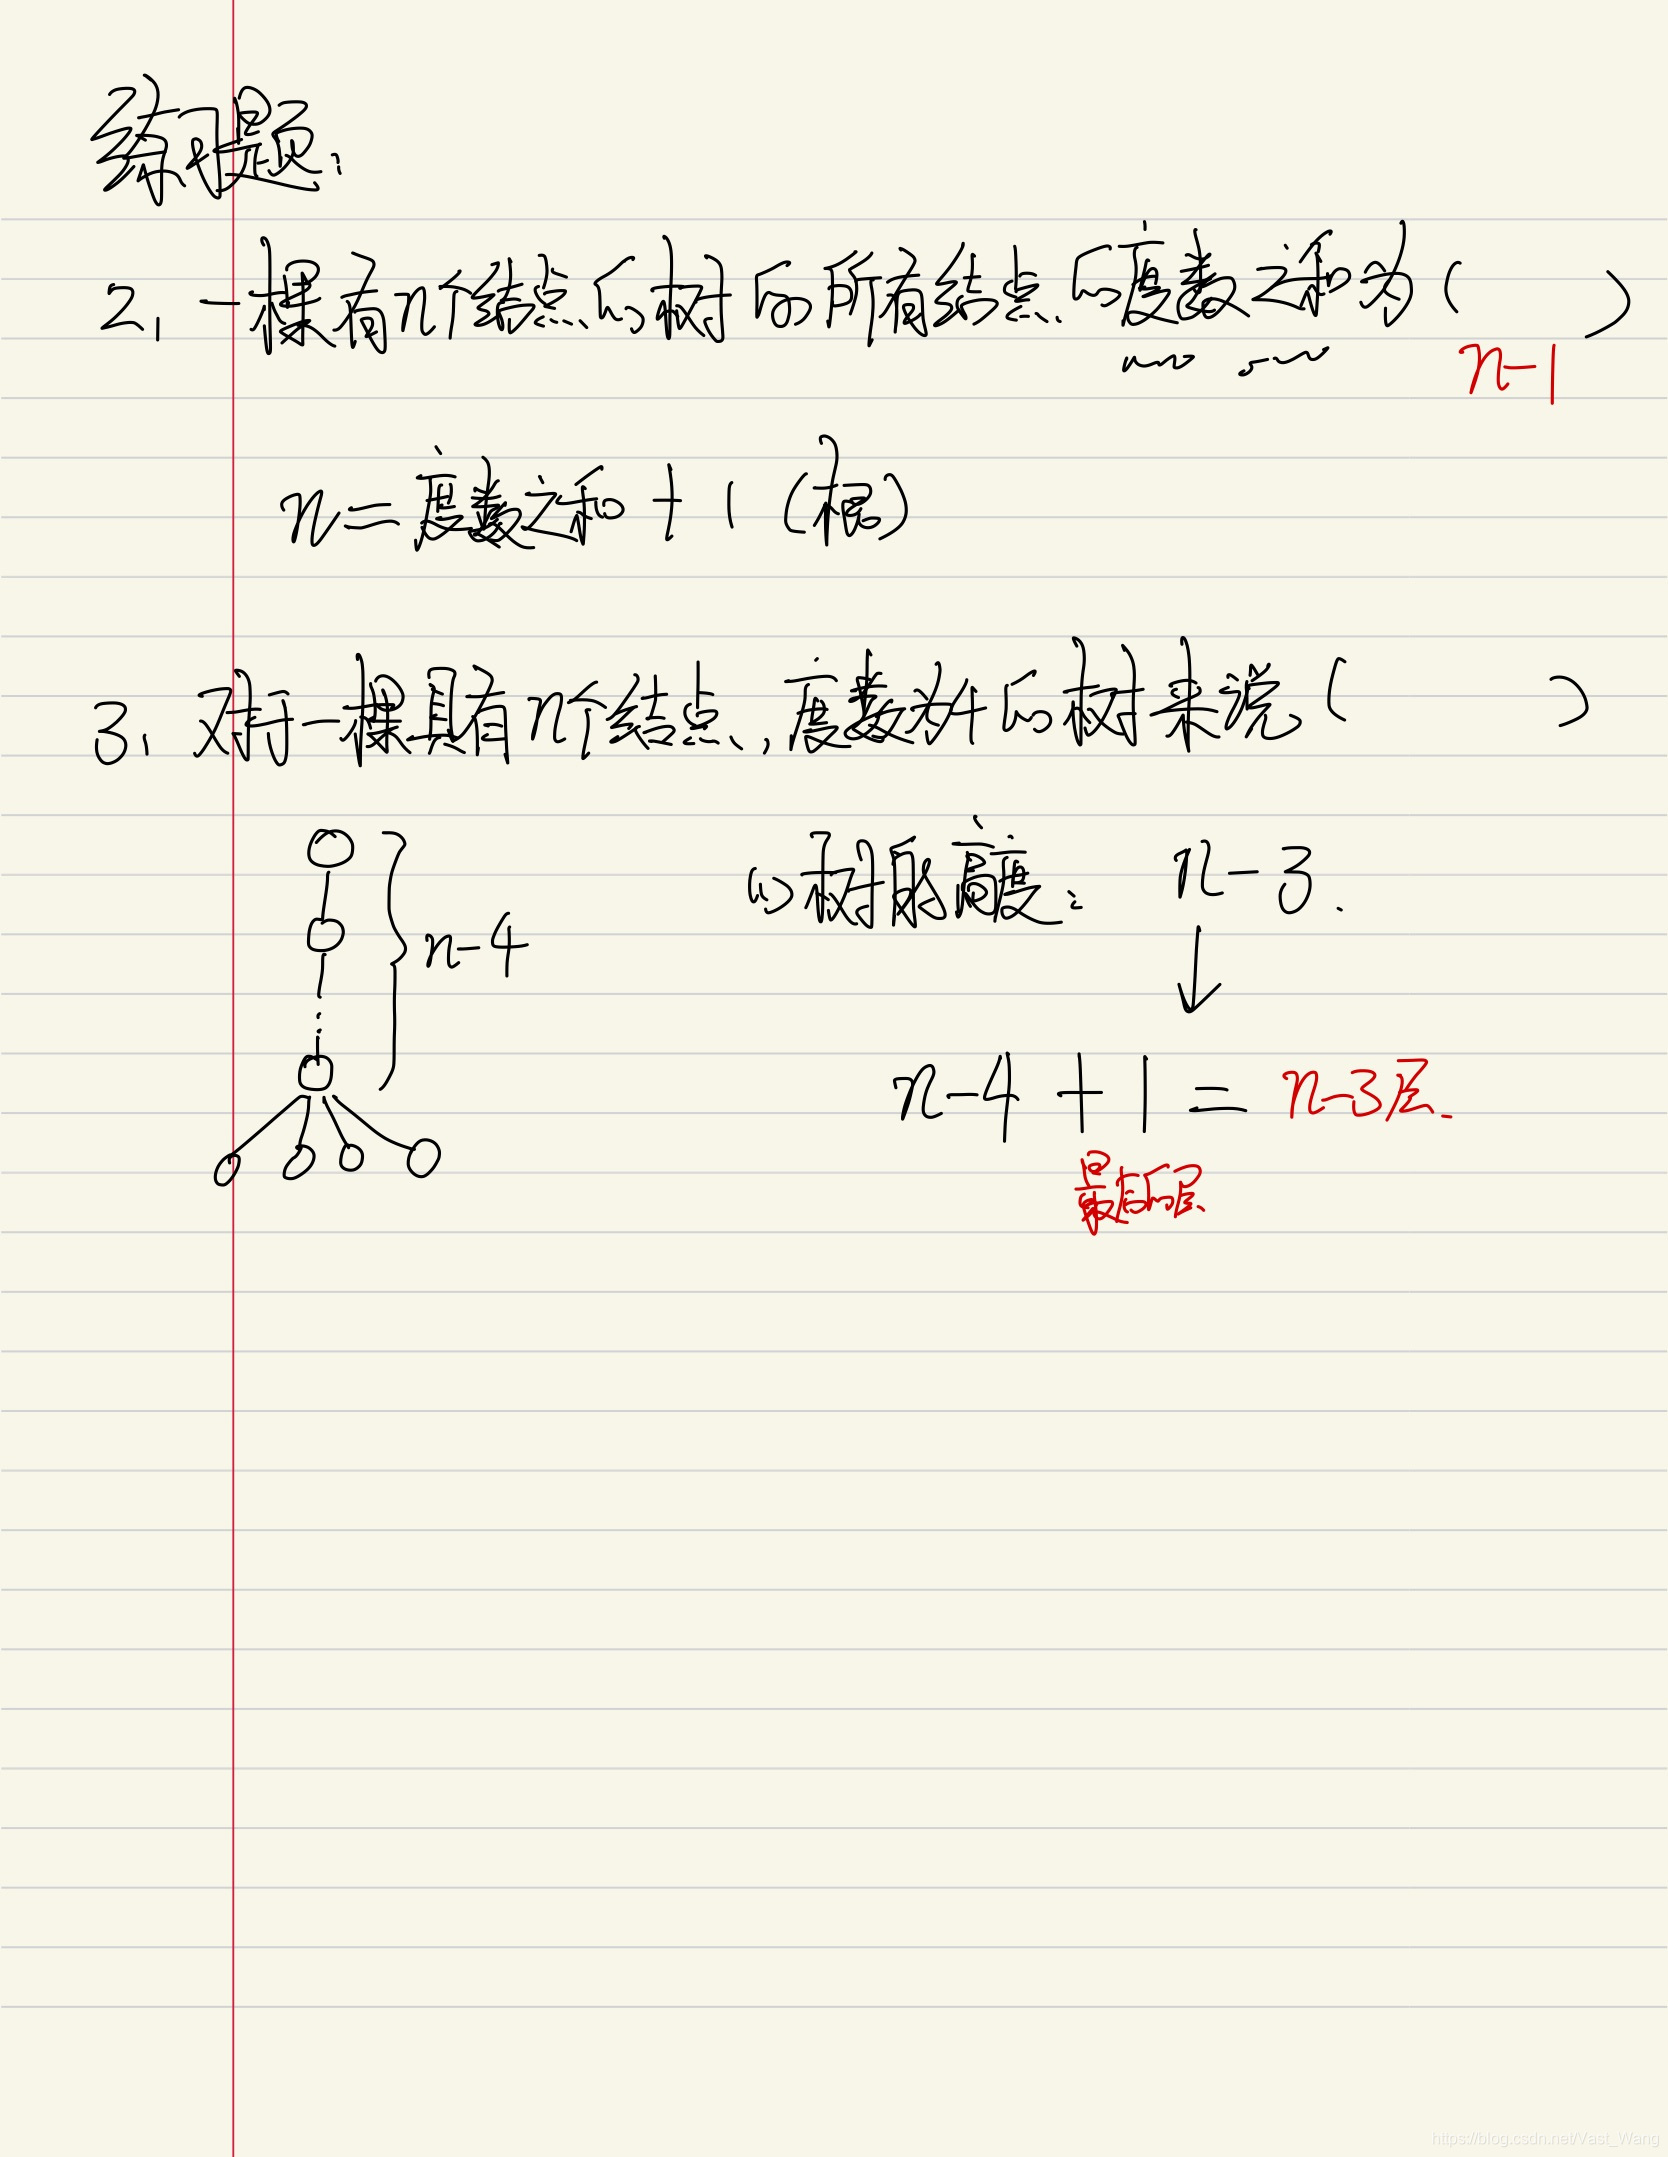 练习题:
2. 一棵有n个结点的树的所有结点的度数之和为( )
n-1
n=度数之和+1(根)
3. 对于一棵具有n个结点,度数为4的树来说( )
n-4
(1)树的高度: n-3.
n-4+1=n-3层.
最后的层
https://blog.csdn.net/Vast_Wang